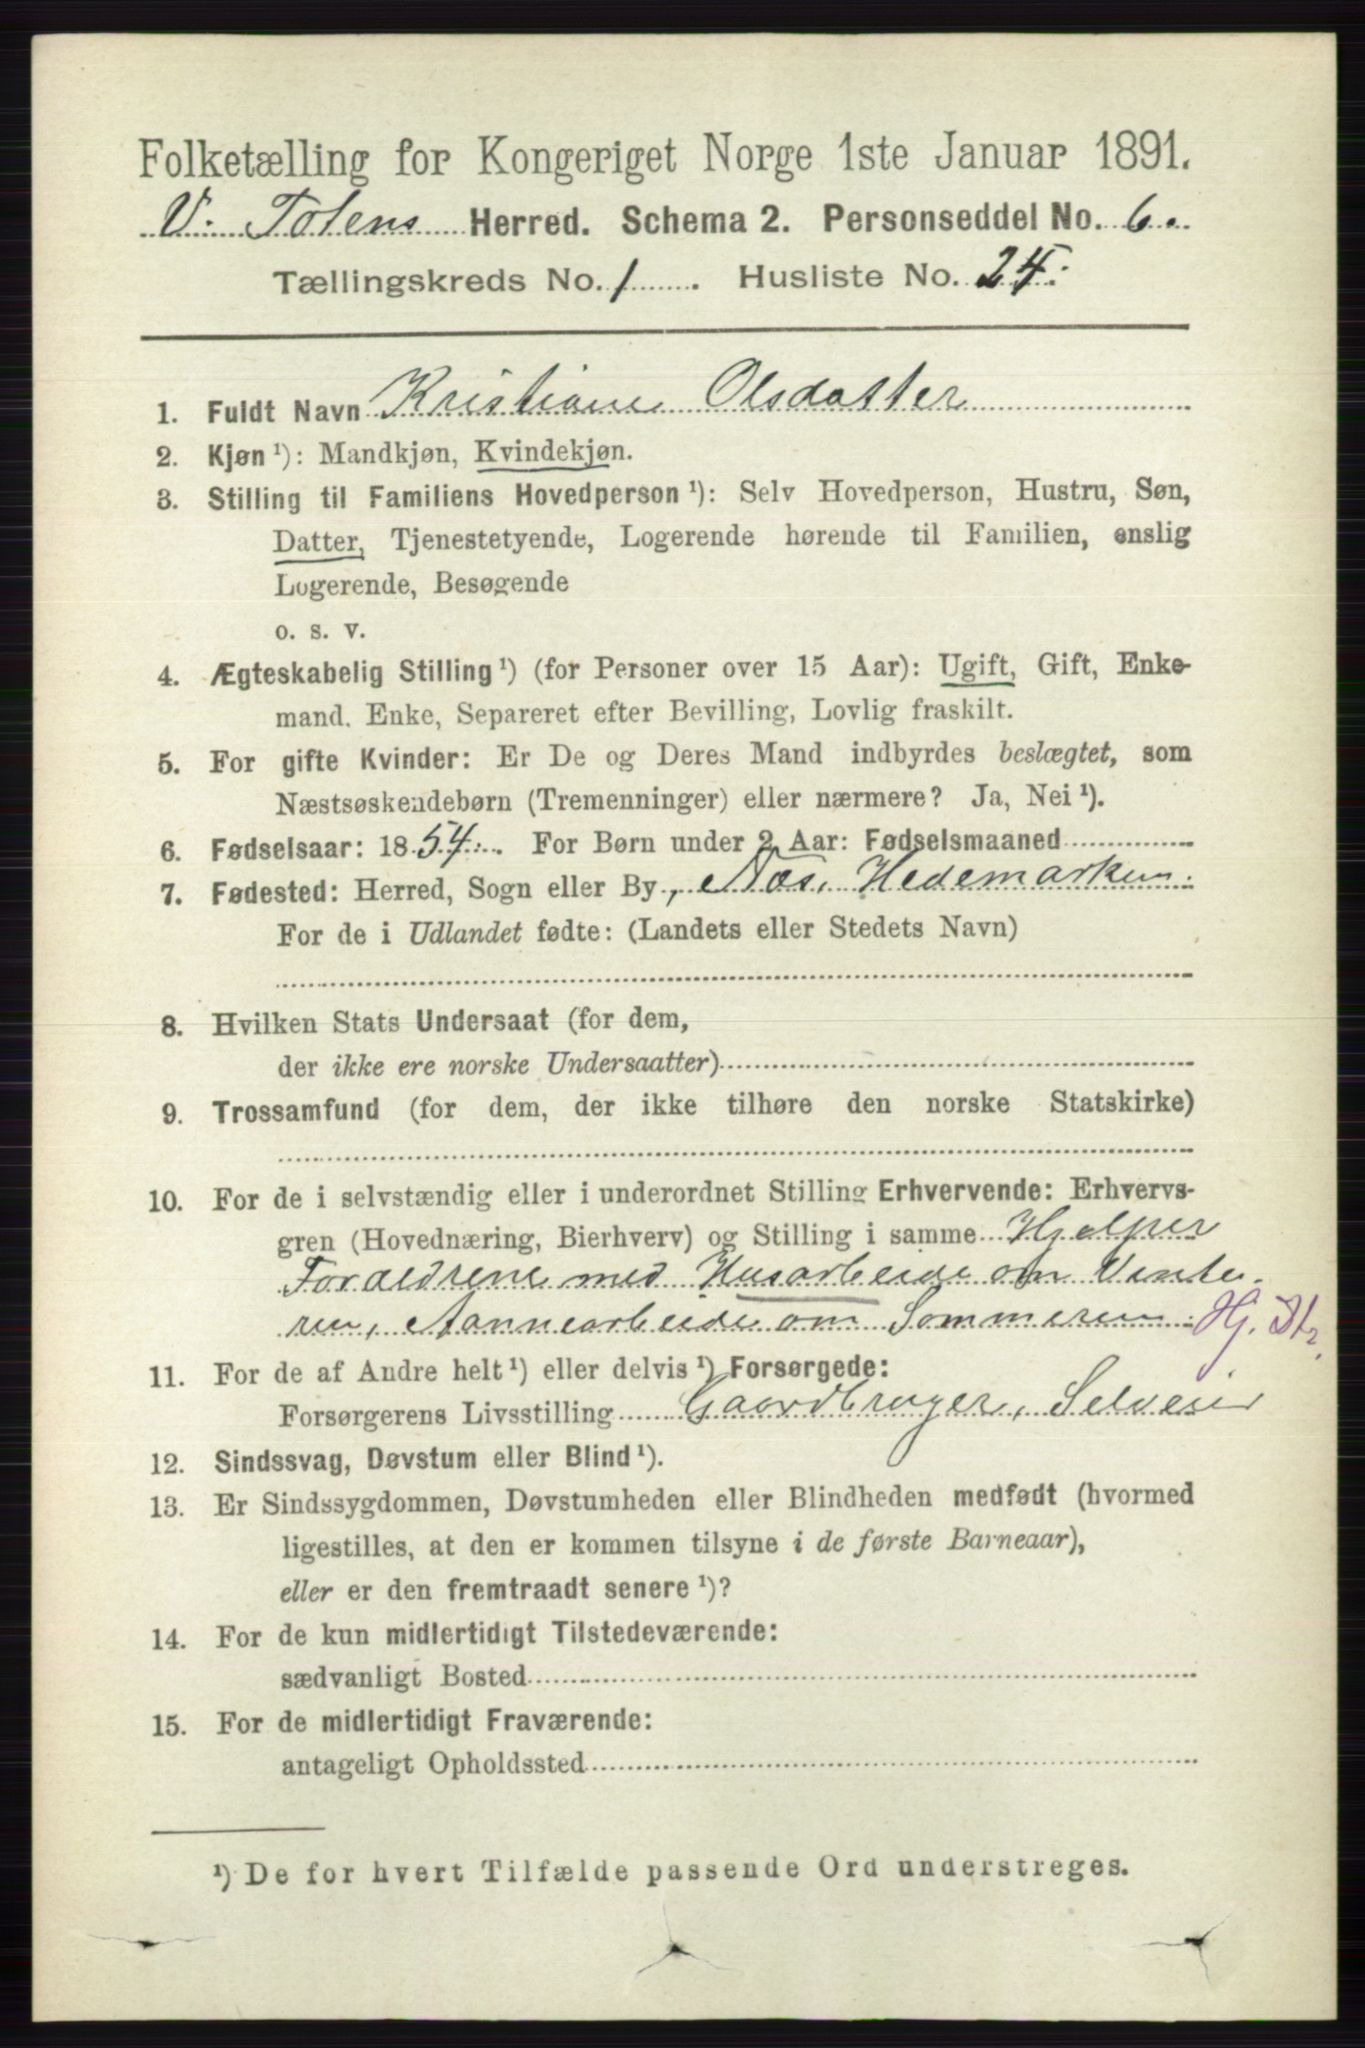 Folketælling for Kongeriget Norge 1ste Januar 1891.
V. Totens Herred. Schema 2. Personseddel No. 6.
Tællingskreds No. 1. Husliste No. 24.
1. Fuldt Navn Kristiane Olsdatter
2. Kjøn ¹): Mandkjøn, Kvindekjøn.
3. Stilling til Familiens Hovedperson ¹): Selv Hovedperson, Hustru, Søn,
Datter, Tjenestetyende, Logerende hørende til Familien, enslig
Logerende, Besøgende
o. s. v.
4. Ægteskabelig Stilling ¹) (for Personer over 15 Aar): Ugift, Gift, Enke-
mand, Enke, Separeret efter Bevilling, Lovlig fraskilt.
5. For gifte Kvinder: Er De og Deres Mand indbyrdes beslægtet, som
Næstsøskendebørn (Tremenninger) eller nærmere? Ja, Nei ¹).
6. Fødselsaar: 1854. For Børn under 2 Aar: Fødselsmaaned
7. Fødested: Herred, Sogn eller By, Næs, Hedemarken.
For de i Udlandet fødte: (Landets eller Stedets Navn)
8. Hvilken Stats Undersaat (for dem,
der ikke ere norske Undersaatter)
9. Trossamfund (for dem, der ikke tilhøre den norske Statskirke)
10. For de i selvstændig eller i underordnet Stilling Erhvervende: Erhvervs-
gren (Hovednæring, Bierhverv) og Stilling i samme Hjælper
Forældrene med Husarbeide om Vinte-
ren, Aannearbeide om Sommeren. Hj. Dtr.
11. For de af Andre helt ¹) eller delvis ¹) Forsørgede:
Forsørgerens Livsstilling Gaardbruger, Selveier
12. Sindssvag, Døvstum eller Blind ¹).
13. Er Sindssygdommen, Døvstumheden eller Blindheden medfødt (hvormed
ligestilles, at den er kommen tilsyne i de første Barneaar),
eller er den fremtraadt senere ¹)?
14. For de kun midlertidigt Tilstedeværende:
sædvanligt Bosted
15. For de midlertidigt Fraværende:
antageligt Opholdssted
¹) De for hvert Tilfælde passende Ord understreges.